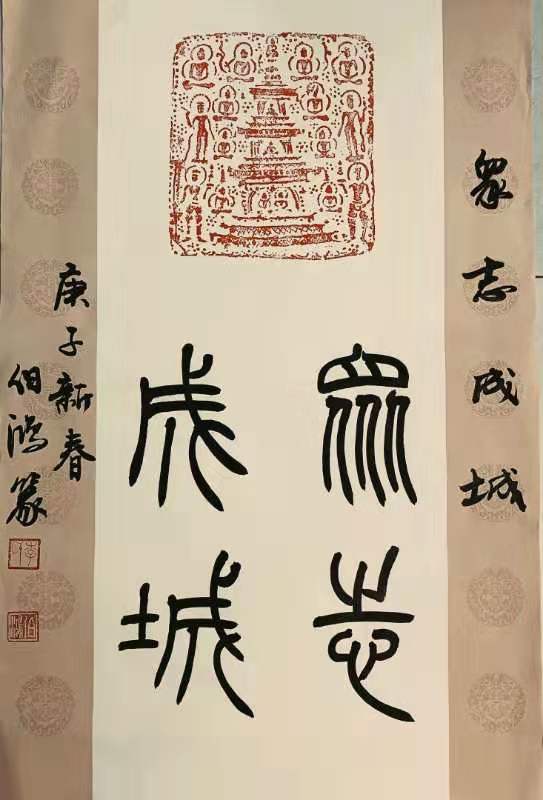 眾志成城
眾志
成城
庚子新春
伯鴻篆